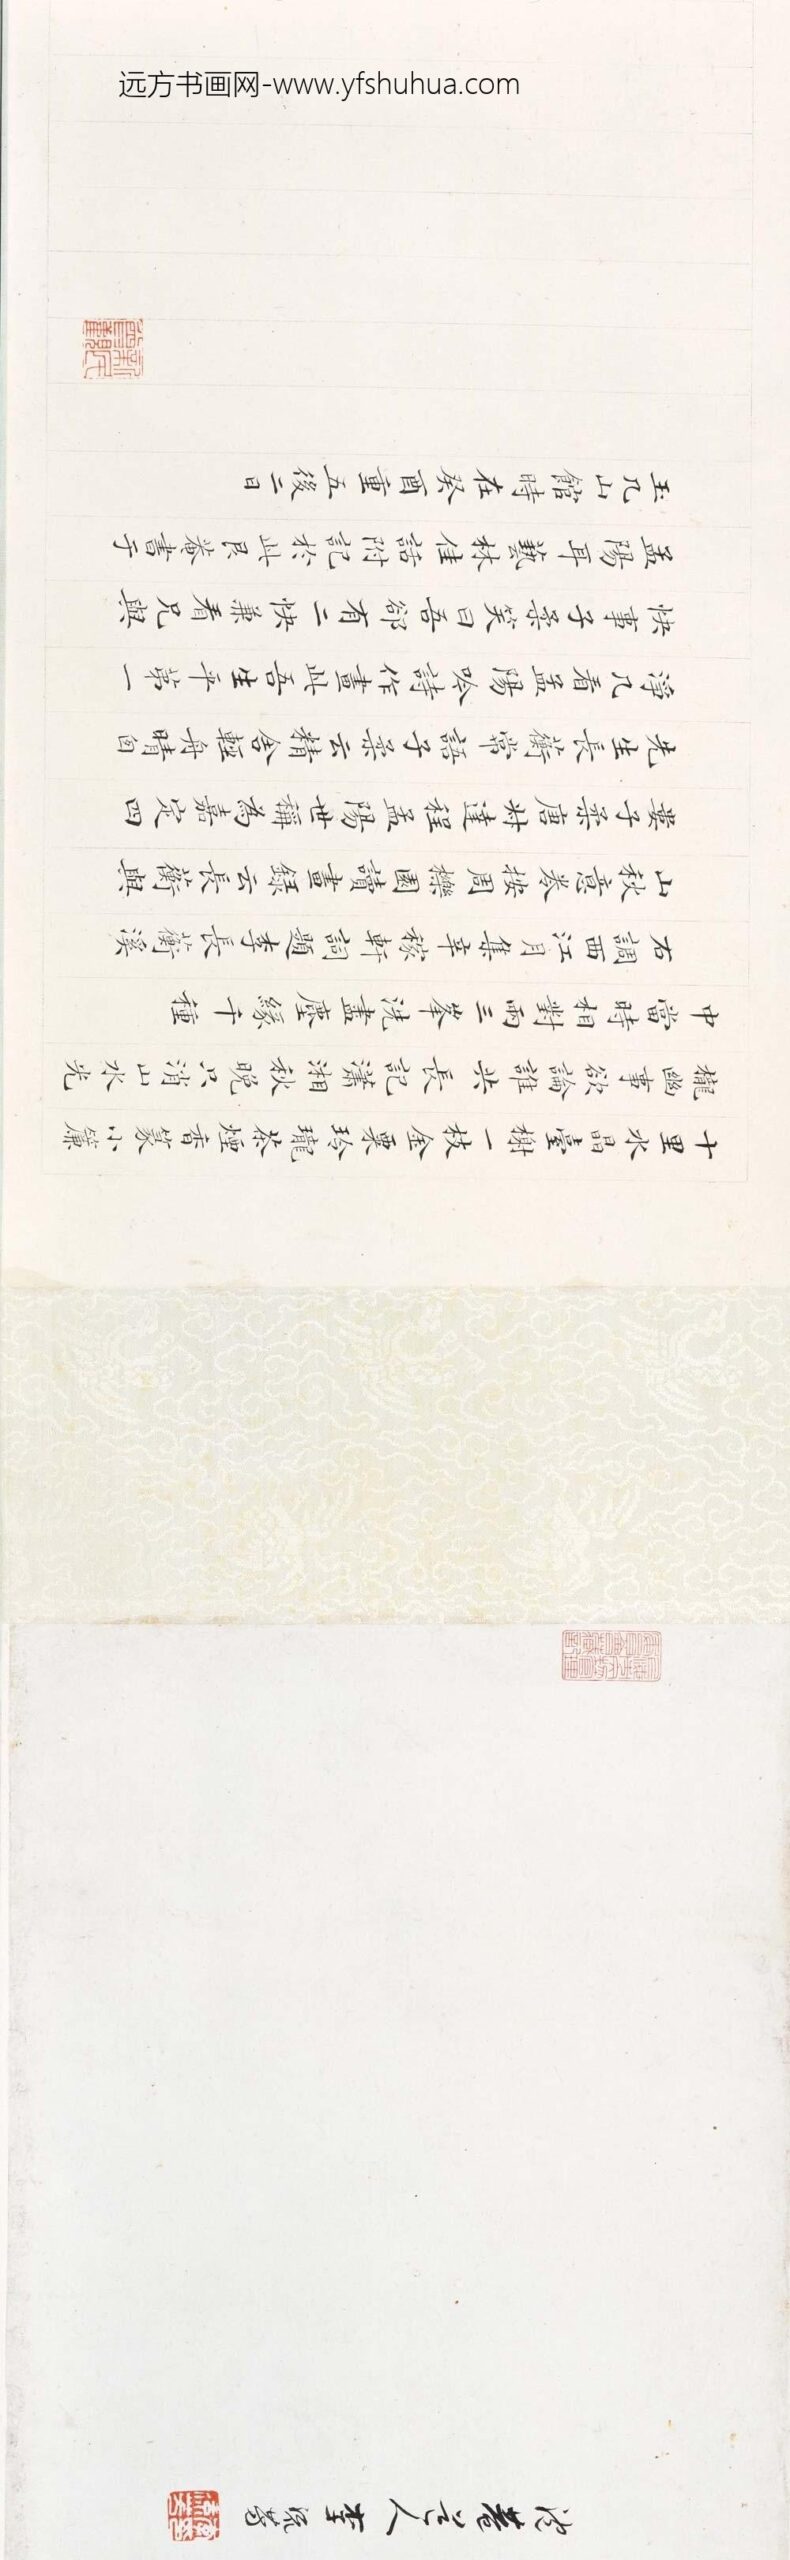 远方书画网-www.yfshuhua.com
十里水晶臺榭一枝金粟玲瓏茶煙香篆小簾
櫳幽事欲論誰共長記瀟湘秋晚只消山水光
中當時相對兩三峯洗盡塵緣千種
右調西江月集辛稼軒詞題李長蘅溪
山秋意卷按周櫟園讀畫錄云長蘅與
婁子柔唐叔達程孟陽世稱為嘉定四
先生長蘅常語子柔云精舍輕舟晴窗
淨几看孟陽吟詩作畫此吾生平第一
快事子柔笑曰吾卻有二快兼看兄與
孟陽耳藝林佳話附記於此艮菴書于
玉几山館時在癸酉重五後二日
李流芳